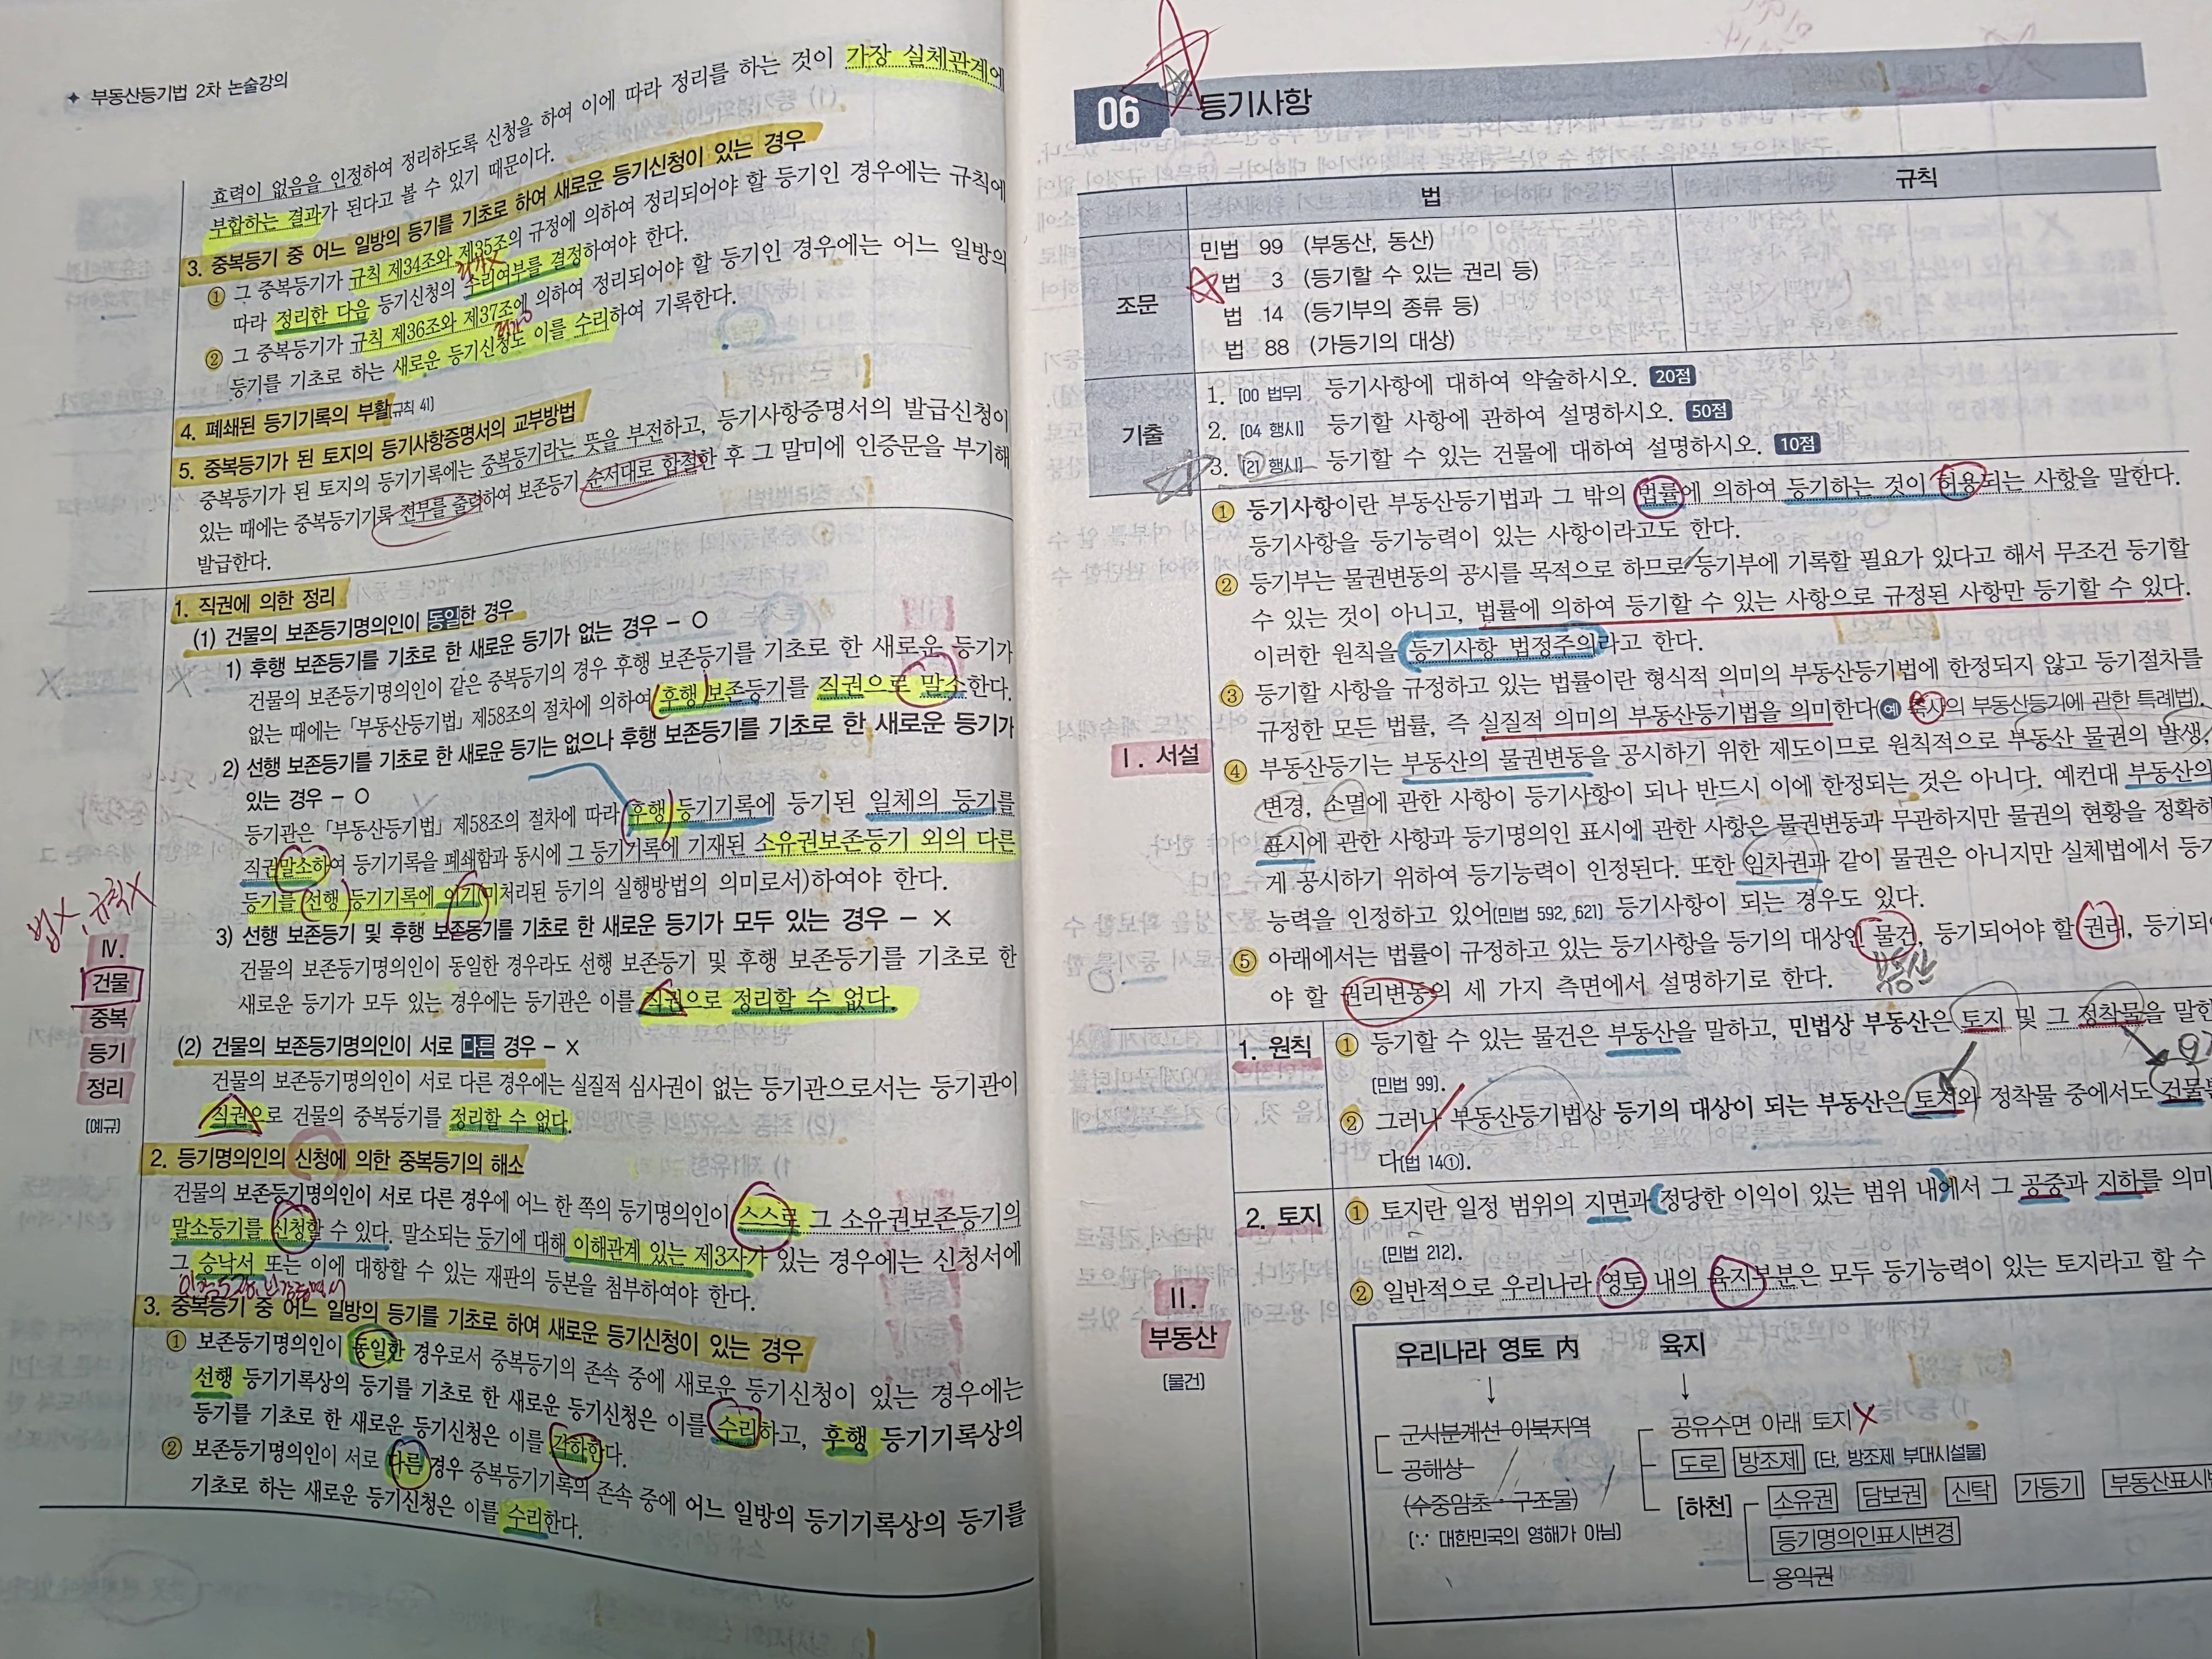 부동산등기법 2차 논술강의
효력이 없음을 인정하여 정리하도록 신청을 하여 이에 따라 정리를 하는 것이 가장 실체관계에
부합하는 결과가 된다고 볼 수 있기 때문이다.
3. 중복등기 중 어느 일방의 등기를 기초로 하여 새로운 등기신청이 있는 경우
① 그 중복등기가 규칙 제34조와 제35조의 규정에 의하여 정리되어야 할 등기인 경우에는 규칙에
따라 정리한 다음 등기신청의 수리여부를 결정하여야 한다.
② 그 중복등기가 규칙 제36조와 제37조에 의하여 정리되어야 할 등기인 경우에는 어느 일방의
등기를 기초로 하는 새로운 등기신청도 이를 수리하여 기록한다.
4. 폐쇄된 등기기록의 부활[규칙 41]
5. 중복등기가 된 토지의 등기사항증명서의 교부방법
중복등기가 된 토지의 등기기록에는 중복등기라는 뜻을 부전하고, 등기사항증명서의 발급신청이
있는 때에는 중복등기기록 전부를 출력하여 보존등기 순서대로 합철한 후 그 말미에 인증문을 부기해
발급한다.
법X, 규칙X
Ⅳ.
건물
중복
등기
정리
[예규]
1. 직권에 의한 정리
(1) 건물의 보존등기명의인이 동일한 경우
1) 후행 보존등기를 기초로 한 새로운 등기가 없는 경우 – O
건물의 보존등기명의인이 같은 중복등기의 경우 후행 보존등기를 기초로 한 새로운 등기가
없는 때에는 「부동산등기법」 제58조의 절차에 의하여 후행 보존등기를 직권으로 말소한다.
2) 선행 보존등기를 기초로 한 새로운 등기는 없으나 후행 보존등기를 기초로 한 새로운 등기가
있는 경우 – O
등기관은 「부동산등기법」 제58조의 절차에 따라 후행 등기기록에 등기된 일체의 등기를
직권말소하여 등기기록을 폐쇄함과 동시에 그 등기기록에 기재된 소유권보존등기 외의 다른
등기를 선행 등기기록에 이기(미처리된 등기의 실행방법의 의미로서)하여야 한다.
3) 선행 보존등기 및 후행 보존등기를 기초로 한 새로운 등기가 모두 있는 경우 – ×
건물의 보존등기명의인이 동일한 경우라도 선행 보존등기 및 후행 보존등기를 기초로 한
새로운 등기가 모두 있는 경우에는 등기관은 이를 직권으로 정리할 수 없다.
(2) 건물의 보존등기명의인이 서로 다른 경우 – ×
건물의 보존등기명의인이 서로 다른 경우에는 실질적 심사권이 없는 등기관으로서는 등기관이
직권으로 건물의 중복등기를 정리할 수 없다.
2. 등기명의인의 신청에 의한 중복등기의 해소
건물의 보존등기명의인이 서로 다른 경우에 어느 한 쪽의 등기명의인이 스스로 그 소유권보존등기의
말소등기를 신청할 수 있다. 말소되는 등기에 대해 이해관계 있는 제3자가 있는 경우에는 신청서에
그 승낙서 또는 이에 대항할 수 있는 재판의 등본을 첨부하여야 한다.
3. 중복등기 중 어느 일방의 등기를 기초로 하여 새로운 등기신청이 있는 경우
① 보존등기명의인이 동일한 경우로서 중복등기의 존속 중에 새로운 등기신청이 있는 경우에는
선행 등기기록상의 등기를 기초로 한 새로운 등기신청은 이를 수리하고, 후행 등기기록상의
등기를 기초로 한 새로운 등기신청은 이를 각하한다.
② 보존등기명의인이 서로 다른 경우 중복등기기록의 존속 중에 어느 일방의 등기기록상의 등기를
기초로 하는 새로운 등기신청은 이를 수리한다.
06 등기사항
법 규칙
조문
민법 99 (부동산, 동산)
법 3 (등기할 수 있는 권리 등)
법 14 (등기부의 종류 등)
법 88 (가등기의 대상)
기출
1. [00 법무] 등기사항에 대하여 약술하시오. 20점
2. [04 행시] 등기할 사항에 관하여 설명하시오. 50점
3. [21 행시] 등기할 수 있는 건물에 대하여 설명하시오. 10점
Ⅰ. 서설
① 등기사항이란 부동산등기법과 그 밖의 법률에 의하여 등기하는 것이 허용되는 사항을 말한다.
등기사항을 등기능력이 있는 사항이라고도 한다.
② 등기부는 물권변동의 공시를 목적으로 하므로 등기부에 기록할 필요가 있다고 해서 무조건 등기할
수 있는 것이 아니고, 법률에 의하여 등기할 수 있는 사항으로 규정된 사항만 등기할 수 있다.
이러한 원칙을 등기사항 법정주의라고 한다.
③ 등기할 사항을 규정하고 있는 법률이란 형식적 의미의 부동산등기법에 한정되지 않고 등기절차를
규정한 모든 법률, 즉 실질적 의미의 부동산등기법을 의미한다(예 축사의 부동산등기에 관한 특례법).
④ 부동산등기는 부동산의 물권변동을 공시하기 위한 제도이므로 원칙적으로 부동산 물권의 발생,
변경, 소멸에 관한 사항이 등기사항이 되나 반드시 이에 한정되는 것은 아니다. 예컨대 부동산의
표시에 관한 사항과 등기명의인 표시에 관한 사항은 물권변동과 무관하지만 물권의 현황을 정확하
게 공시하기 위하여 등기능력이 인정된다. 또한 임차권과 같이 물권은 아니지만 실체법에서 등기
능력을 인정하고 있어[민법 592, 621] 등기사항이 되는 경우도 있다.
⑤ 아래에서는 법률이 규정하고 있는 등기사항을 등기의 대상인 물건, 등기되어야 할 권리, 등기되어
야 할 권리변동의 세 가지 측면에서 설명하기로 한다.
부동산
Ⅱ.
부동산
[물건]
1. 원칙
① 등기할 수 있는 물건은 부동산을 말하고, 민법상 부동산은 토지 및 그 정착물을 말한
[민법 99].
② 그러나 부동산등기법상 등기의 대상이 되는 부동산은 토지와 정착물 중에서도 건물
다[법 14①].
2. 토지
① 토지란 일정 범위의 지면과 정당한 이익이 있는 범위 내에서 그 공중과 지하를 의미
[민법 212].
② 일반적으로 우리나라 영토 내의 육지부분은 모두 등기능력이 있는 토지라고 할 수
우리나라 영토 內 육지
↓ ↓
군사분계선 이북지역
공해상
(수중암초·구조물)
[∵ 대한민국의 영해가 아님]
공유수면 아래 토지 X
도로 방조제 [단, 방조제 부대시설물]
[하천] 소유권 담보권 신탁 가등기 부동산표시변
등기명의인표시변경
용익권